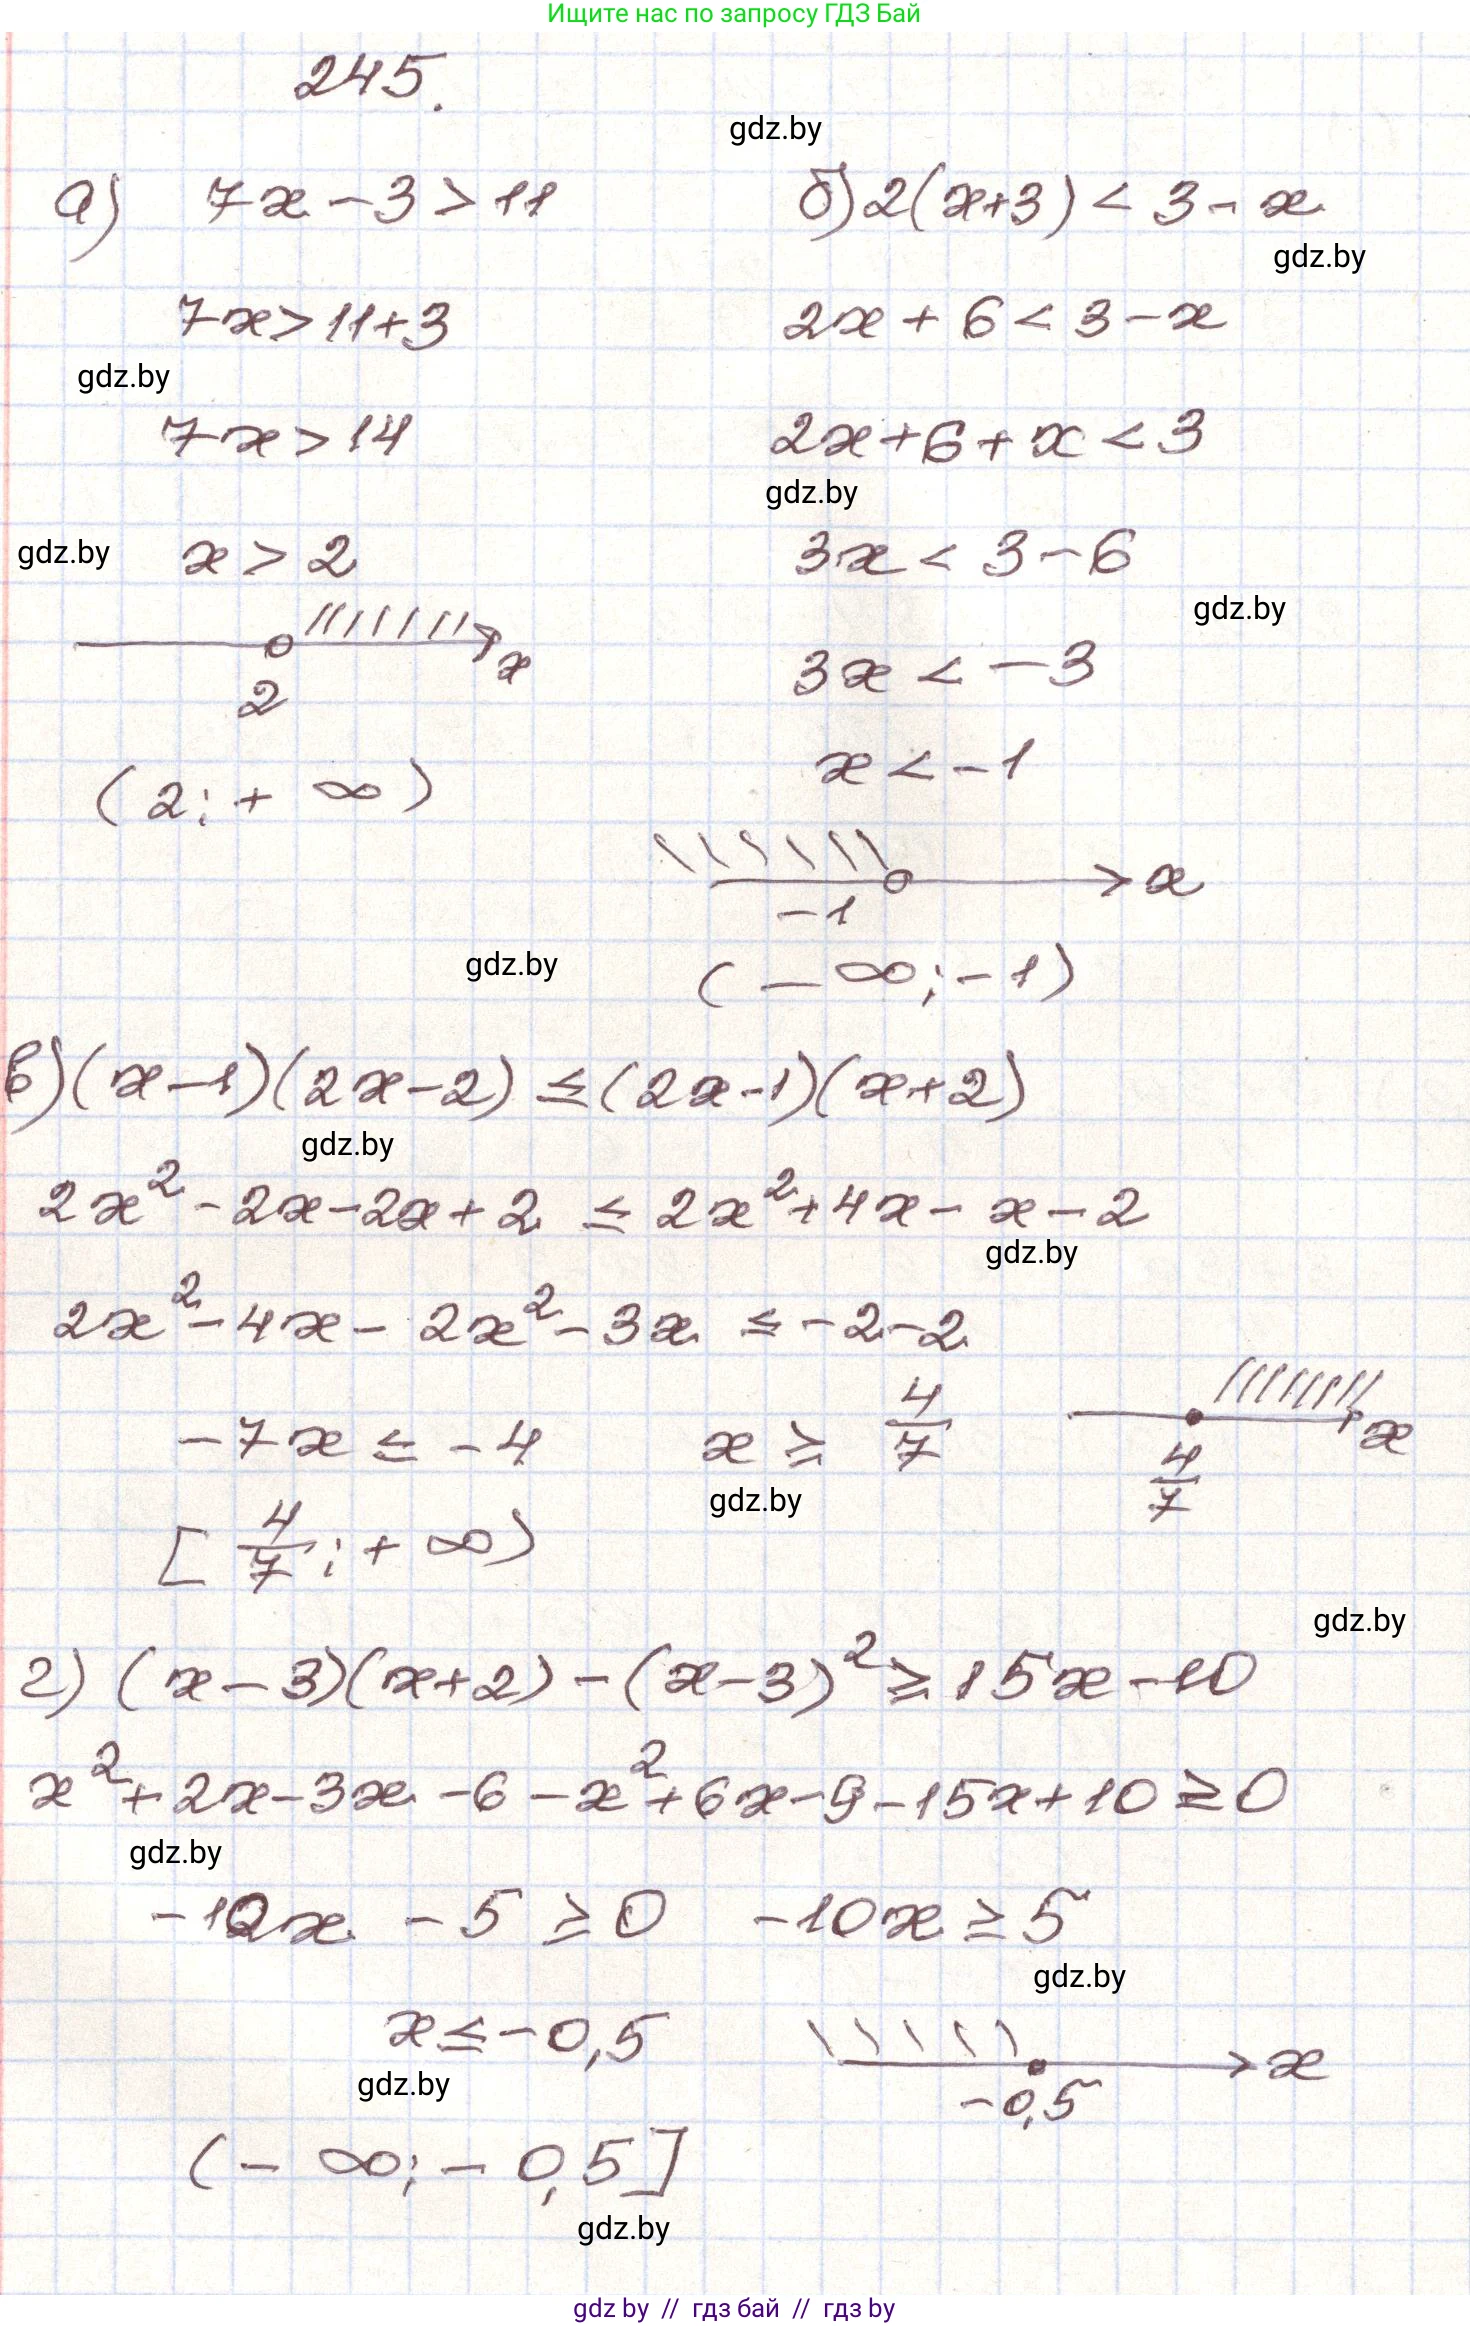 Ищите нас по запросу ГДЗ Бай
245.
gdz.by
а) 7x - 3 > 11
7x > 11 + 3
gdz.by
7x > 14
gdz.by
x > 2
2 x
(2; + ∞)
б) 2(x+3) < 3 - x
gdz.by
2x + 6 < 3 - x
2x + 6 + x < 3
gdz.by
3x < 3 - 6
gdz.by
3x < - 3
x < - 1
-1 x
gdz.by
(- ∞; - 1)
в) (x - 1)(2x - 2) ≤ (2x - 1)(x + 2)
gdz.by
2x² - 2x - 2x + 2 ≤ 2x² + 4x - x - 2
gdz.by
2x² - 4x - 2x² - 3x ≤ - 2 - 2
- 7x ≤ - 4 x ≥ 4/7
4/7 x
gdz.by
[4/7; + ∞)
gdz.by
г) (x - 3)(x + 2) - (x - 3)² ≥ 15x - 10
x² + 2x - 3x - 6 - x² + 6x - 9 - 15x + 10 ≥ 0
gdz.by
- 10x - 5 ≥ 0 - 10x ≥ 5
gdz.by
x ≤ - 0,5
-0,5 x
gdz.by
(- ∞; - 0,5]
gdz.by
gdz by // гдз бай // гдз by